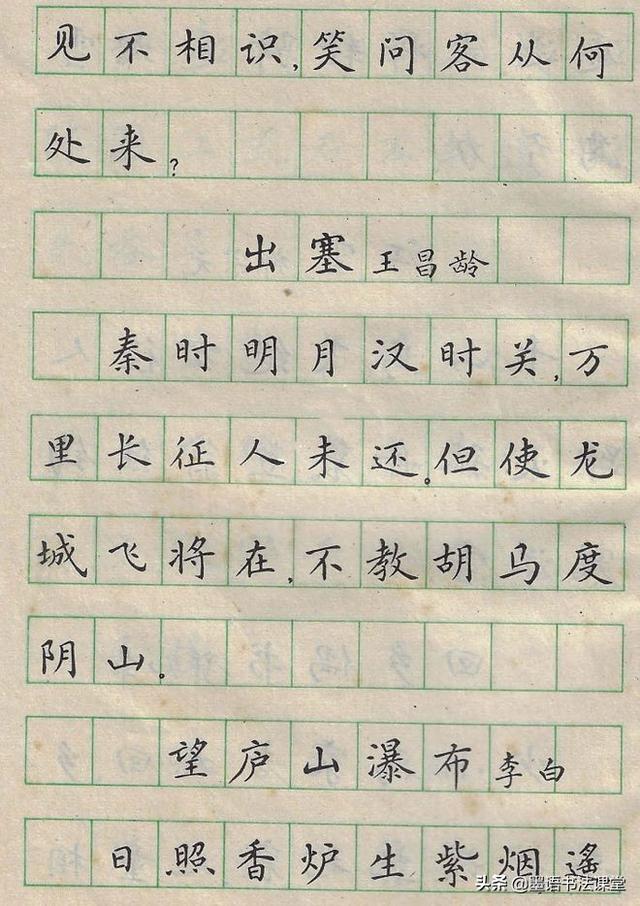 见不相识,笑问客从何
处来?
出塞 王昌龄
秦时明月汉时关,万
里长征人未还。但使龙
城飞将在,不教胡马度
阴山。
望庐山瀑布 李白
日照香炉生紫烟遥
头条 @墨语书法课堂